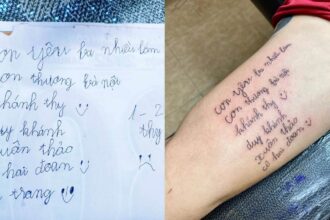 con yêu bà nhiều lắm
con thương bà nội
khánh thy
duy khánh
xuân thảo
cô hai đoan
trang
1 - 2
thy
con yêu bà nhiều lắm
con thương bà nội
khánh thy
duy khánh
xuân thảo
cô hai đoan